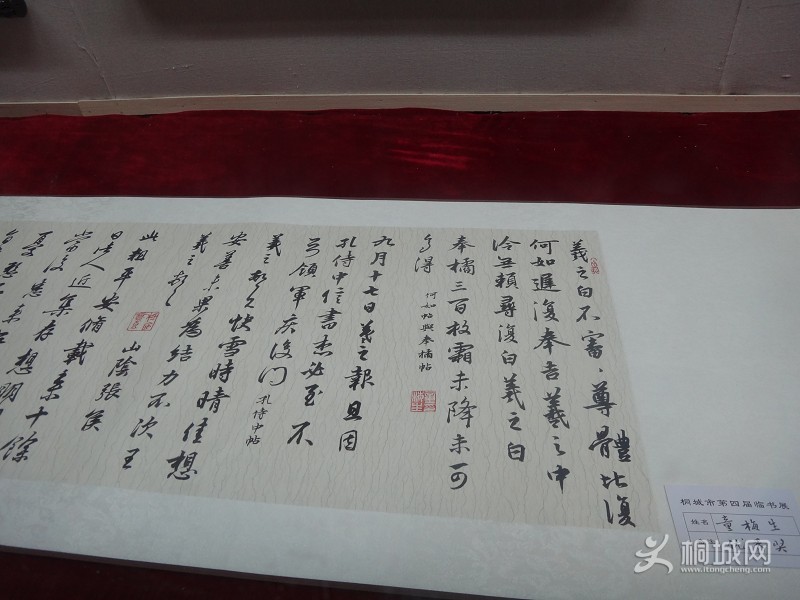 羲之白不審、尊體比復
何如遲復奉告羲之中
冷無賴尋復白羲之白
奉橘三百枚霜未降未可
多得
何如帖與奉橘帖
九月十七日羲之報且因
孔侍中信書想必至不
知領軍疾後问
孔侍中帖
羲之頓首快雪時晴佳想
安善未果為結力不次王
羲之頓首
山陰張侯
此粗平安脩載来十餘
日諸人近集存想明
當復悉
桐城市第四届临书展
姓名 童梅生
桐城网
www.itongcheng.com